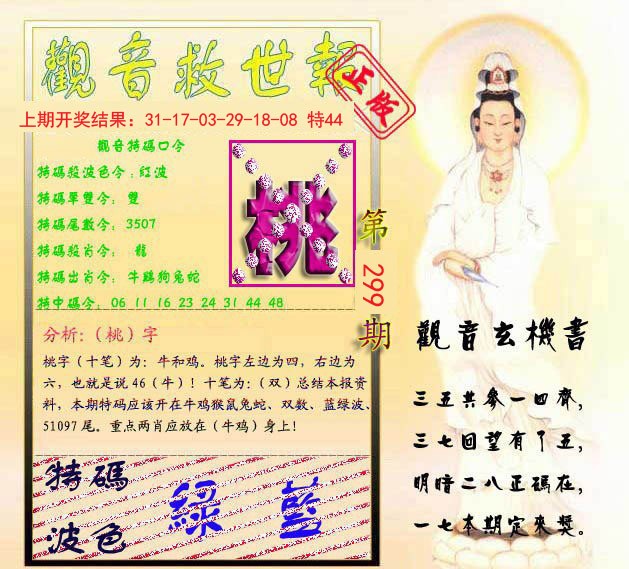 觀音救世報
正版
上期开奖结果: 31-17-03-29-18-08 特44
觀音特碼口令
特碼殺波色令:紅波
特碼單雙令: 雙
特碼尾數令: 3507
特碼殺肖令: 龍
特碼出肖令: 牛鷄狗兔蛇
特中碼令: 06 11 16 23 24 31 44 48
桃
第299期
分析:(桃)字
桃字(十笔)为: 牛和鸡。桃字左边为四, 右边为
六, 也就是说46(牛)! 十笔为:(双)总结本报资
料, 本期特码应该开在牛鸡猴鼠兔蛇、双数、蓝绿波、
51097尾。重点两肖应放在(牛鸡)身上!
特碼
波色
綠 藍
觀音玄機書
三五共參一四齊,
三七回望有了五,
明暗二八正碼在,
一七本期定來獎。